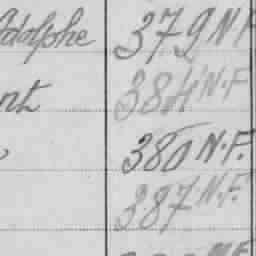 Adolphe 379 N.F.
nt 384 N.F.
380 N.F.
387 N.F.